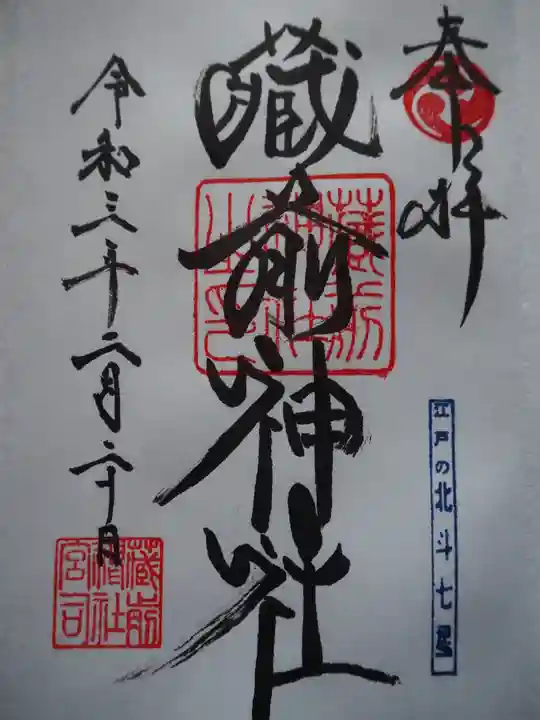 奉拝
江戸の北斗七星
藏前神社
蔵前神社之印
令和三年六月二十日
蔵前神社宮司